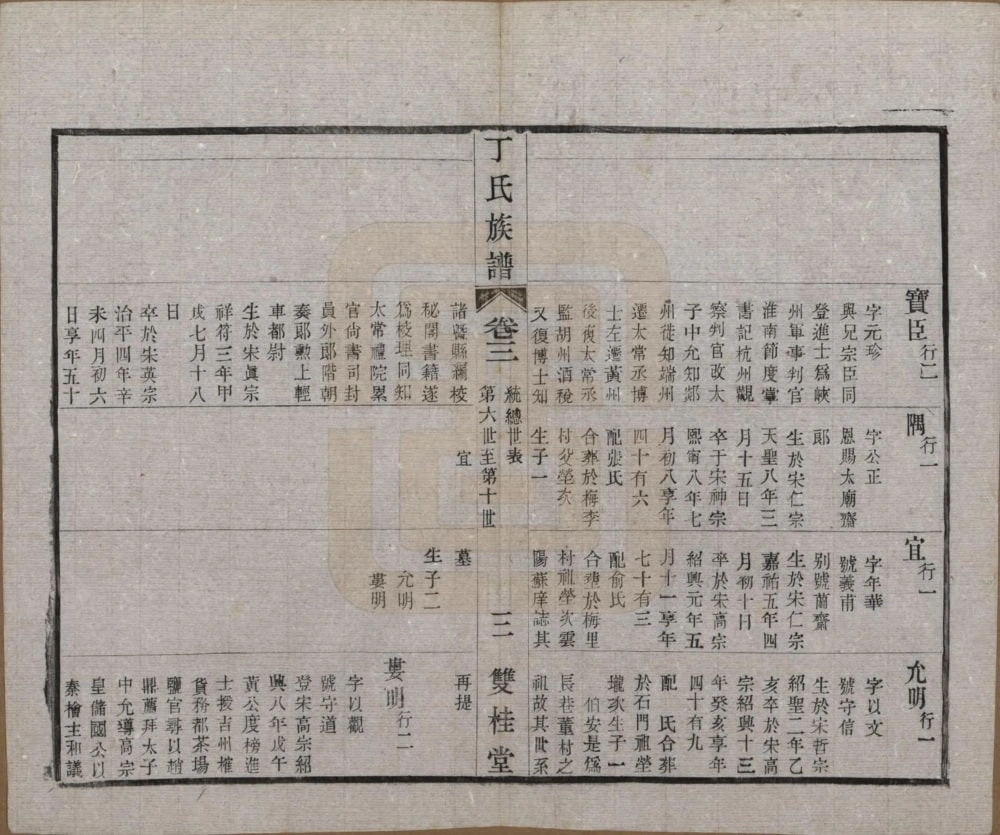 寶臣行二
字元珍
與兄宗臣同
登進士爲峽
州軍事判官
淮南節度掌
書記杭州觀
察判官改太
子中允知剡
州徙知端州
遷太常丞博
士左遷黃州
後復太常丞
監胡州酒稅
又復博士知
諸暨縣編校
秘閣書籍遂
爲校理同知
太常禮院累
官尚書司封
員外郎階朝
奏郎勲上輕
車都尉
生於宋眞宗
祥符三年甲
戌七月十八
日
卒於宋英宗
治平四年辛
未四月初六
日享年五十
隅行一
字公正
恩賜太廟齋
郎
生於宋仁宗
天聖八年三
月十五日
卒于宋神宗
熙甯八年七
月初八享年
四十有六
配張氏
合葬於梅李
村父塋次
生子一
宜
宜行一
字年華
號義甫
別號蘭齋
生於宋仁宗
嘉祐五年四
月初十日
卒於宋高宗
紹興元年五
月十一享年
七十有三
配俞氏
合塟於梅里
村祖塋次雲
陽蘇庠誌其
墓
生子二
允明
婁明
允明行一
字以文
號守信
生於宋哲宗
紹聖二年乙
亥卒於宋高
宗紹興十三
年癸亥享年
四十有九
配 氏合葬
於石門祖塋
壠次生子一
伯安是爲
長巷董村之
祖故其世系
再提
婁明行二
字以觀
號守道
登宋高宗紹
興八年戊午
黃公度榜進
士授吉州榷
貨務都茶場
鹽官尋以趙
鼎薦拜太子
中允導高宗
皇儲國公以
秦檜主和議
丁氏族譜
卷三
統總世表
第六世至第十世
三
雙桂堂